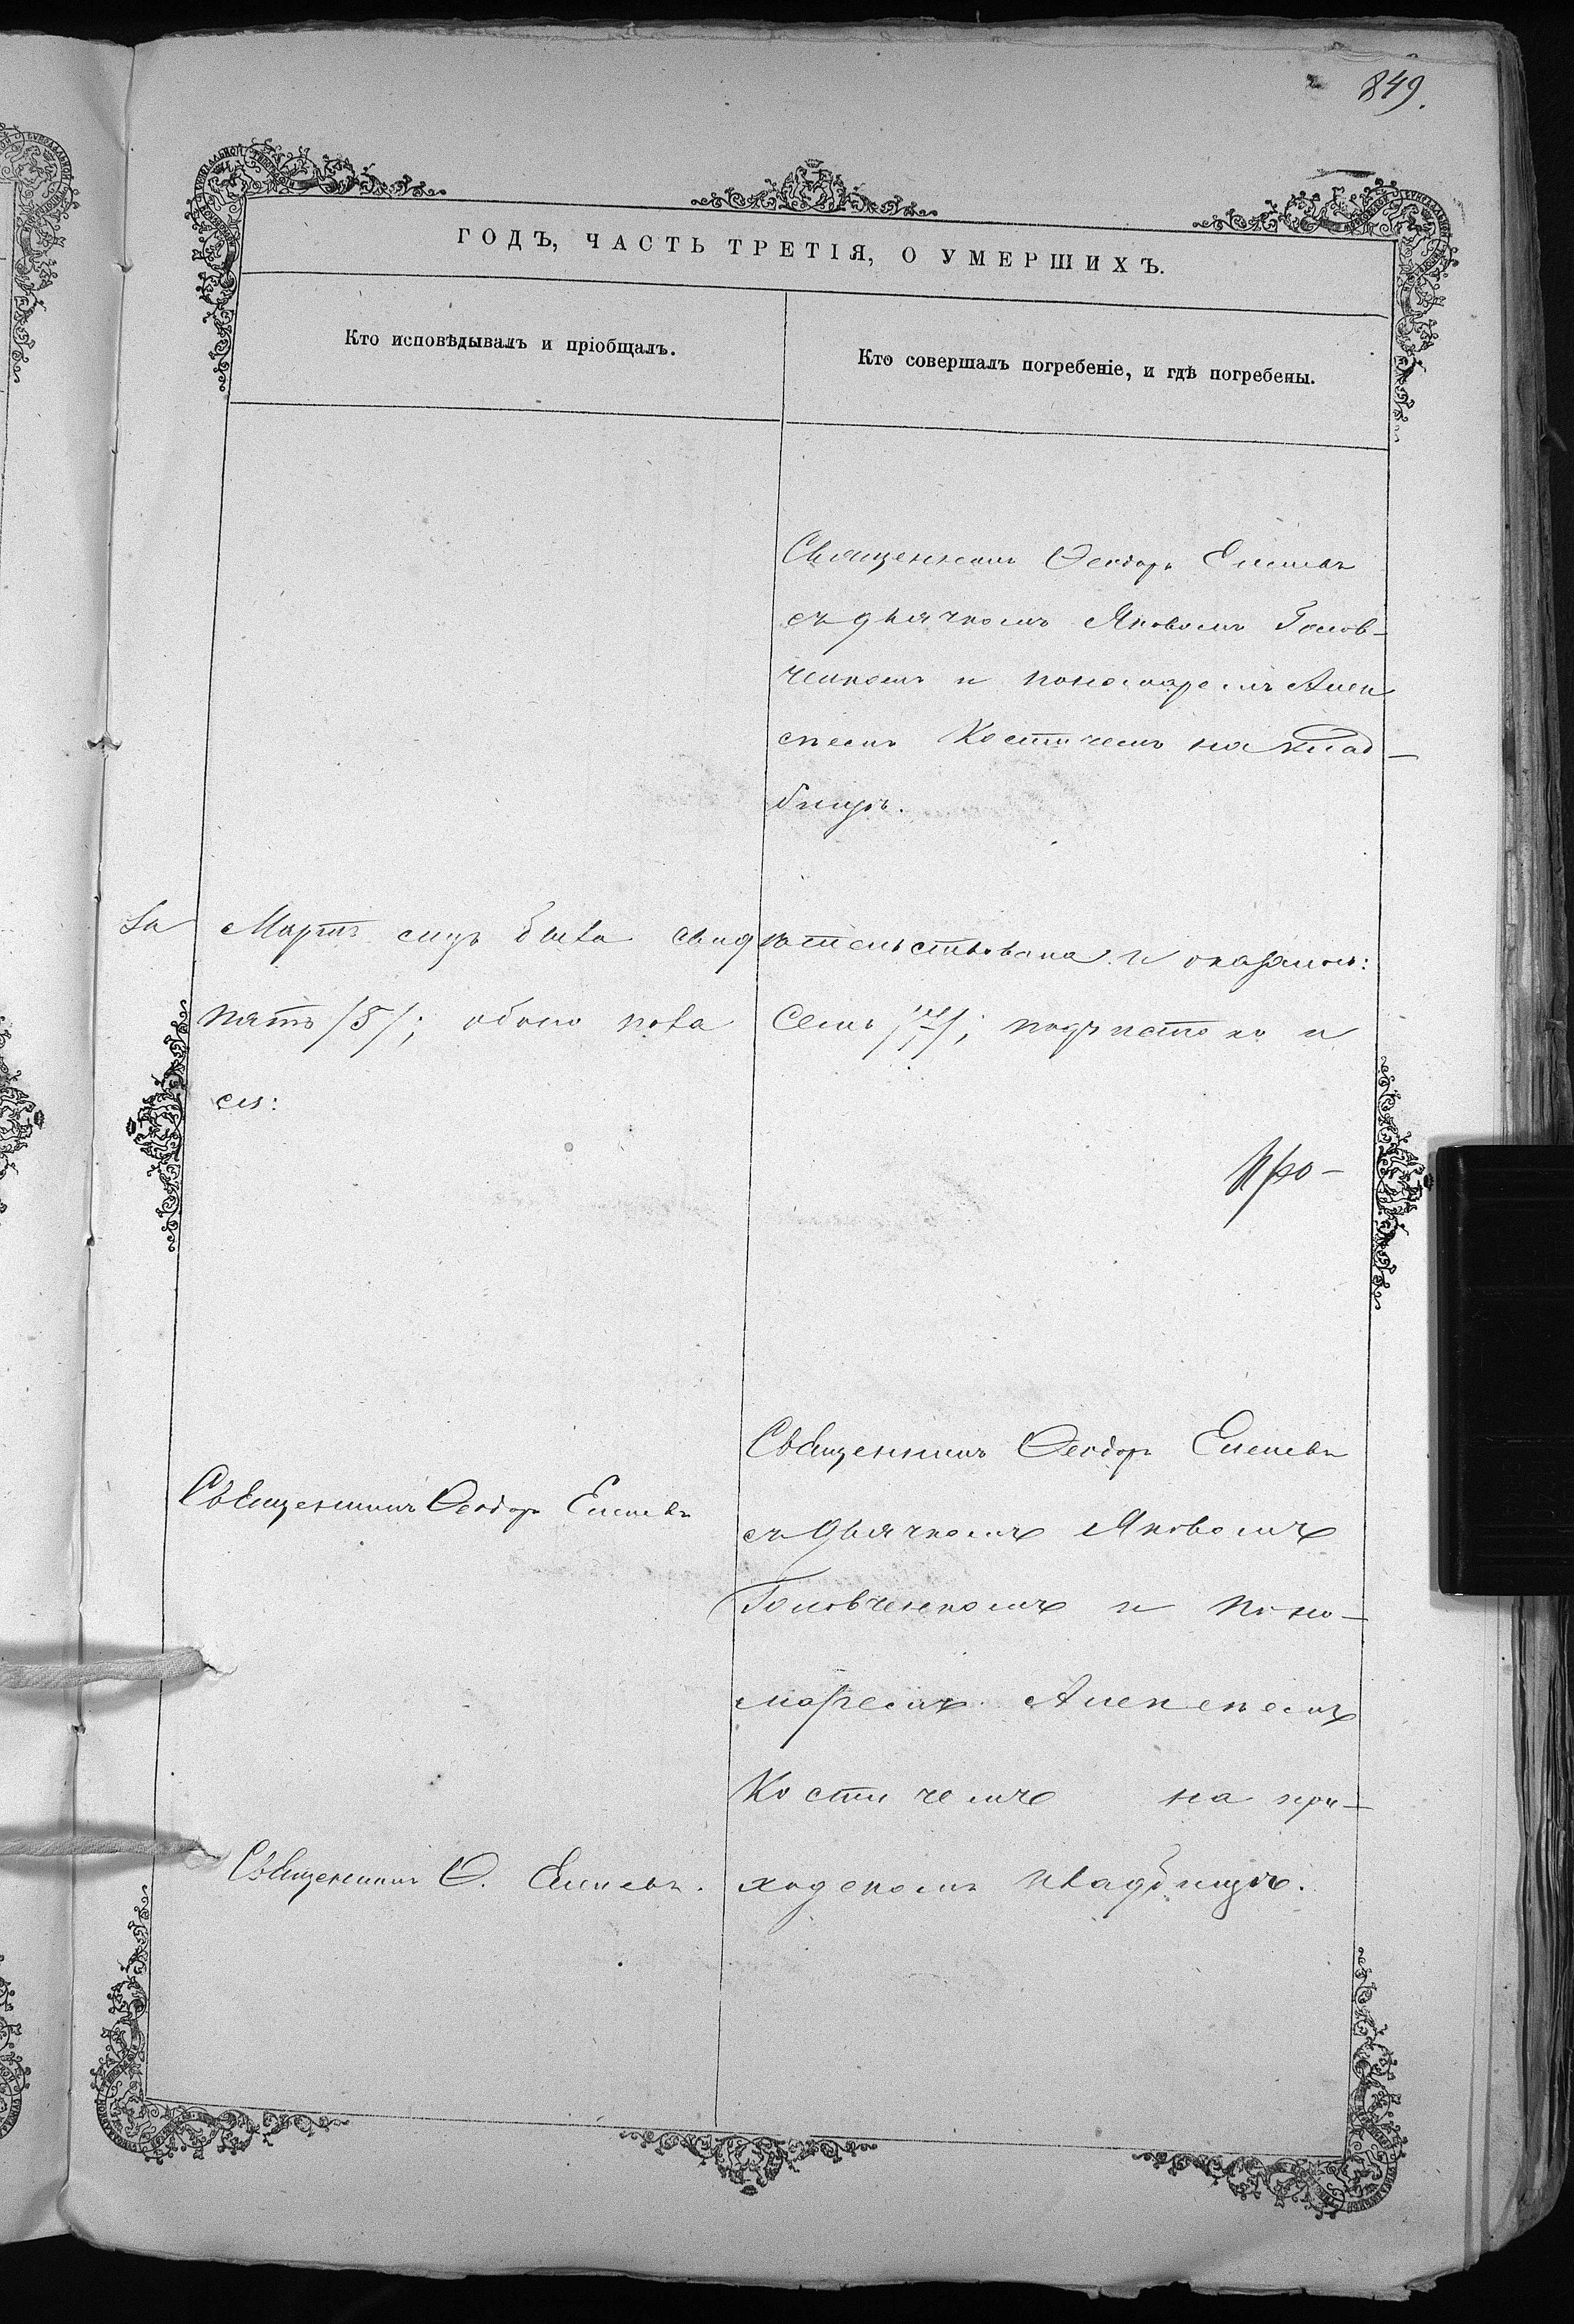 849.
ГОДЪ, ЧАСТЬ ТРЕТІЯ, О УМЕРШИХЪ.
Кто исповѣдывалъ и пріобщалъ.
Кто совершалъ погребеніе, и гдѣ погребены.
Священникъ Ѳеодоръ
съ дьячкомъ Яковомъ Голов-
ченкомъ и пономаремъ Алек
сѣемъ Костичемъ на клад-
бищѣ.
За Мартъ мцъ была свидѣтельствована и оказалось:
пять /5/; обоего пола семь /7/; подчистокъ и
Про-
Священникъ Ѳеодоръ
съ дьячкомъ Яковомъ
Священникъ Ѳеодоръ
Головченкомъ и поно-
маремъ Алексѣемъ
Костичемъ на при-
ходскомъ кладбищѣ.
Священникъ Ѳ.